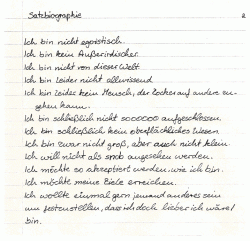 Satzbiographie
Ich bin nicht egoistisch.
Ich bin kein Außerirdischer.
Ich bin nicht von dieser Welt.
Ich bin leider nicht allwissend.
Ich bin leider kein Mensch, der locker auf andere zu-
gehen kann.
Ich bin schließlich nicht sooooo aufgeschlossen.
Ich bin schließlich kein oberflächliches Wesen.
Ich bin zwar nicht groß, aber auch nicht klein.
Ich will nicht als Snob angesehen werden.
Ich möchte so akzeptiert werden, wie ich bin.
Ich möchte meine Ziele erreichen.
Ich wollte einmal gern jemand anderes sein
um festzustellen, dass ich doch lieber ich wäre/
bin.